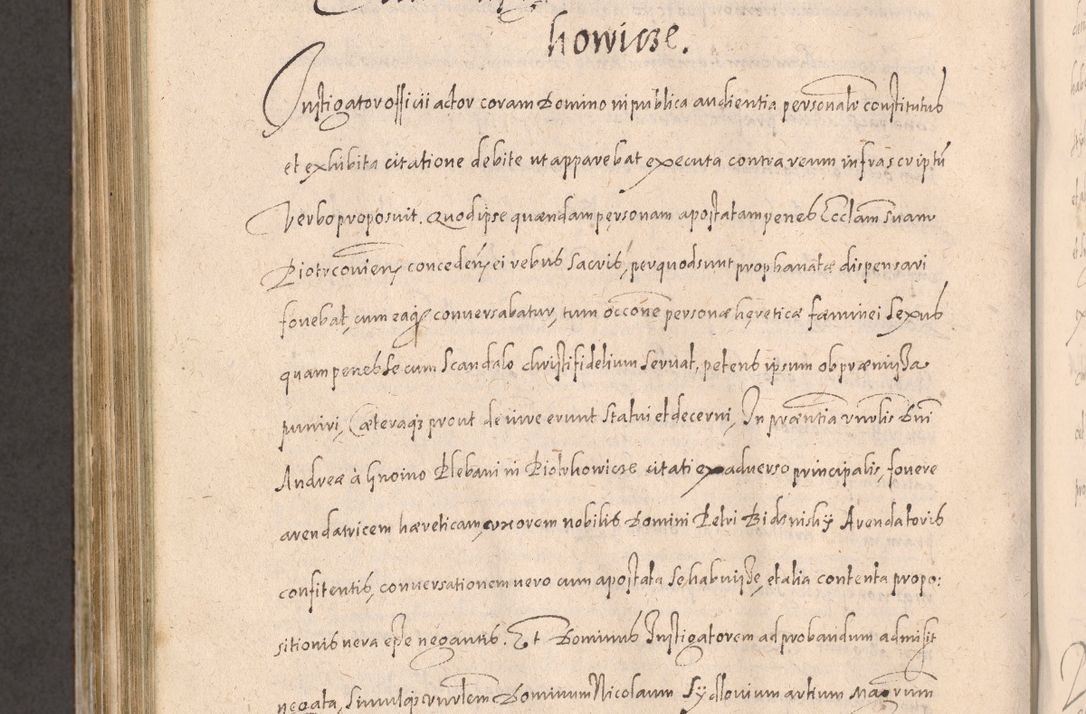 howicze.
Instigator officii actor coram Domino in publica audientia personalr constitutus
et exhibita citatione debite ut apparebat executa contra reum infrascriptū
verbo proposuit. Quod ipse quandam personam apostatam penes Ecclam suam
Piotrcovien, conceden, ei rebus sacris, per quod sunt prophanatæ dispensari
fovebat, cum eaq conversabatur, tum occone personæ hæreticæ fæminei sexus
quam penes se cum scandalo christifidelium servat, petens ipsum ob præmissa
puniri, Cæteraq prout de iure erunt statui et decerni, In præntia vnrlis Dni
Andreæ à Gnoino Plebani in Piotrkowicze citati ex adverso principalis, fovere
arendatricem hæreticam, uxorem nobilis Domini Petri Bidzinsky Arendatoris
confitentis, conversationem vero cum apostata se habuisse, et alia contenta propo:
sitionis vera esse negantis. Et Dominus Instigatorem ad probandum admisit
negata, simulq vnrlem Dominum Nicolaum Sydlovium artium Magrum